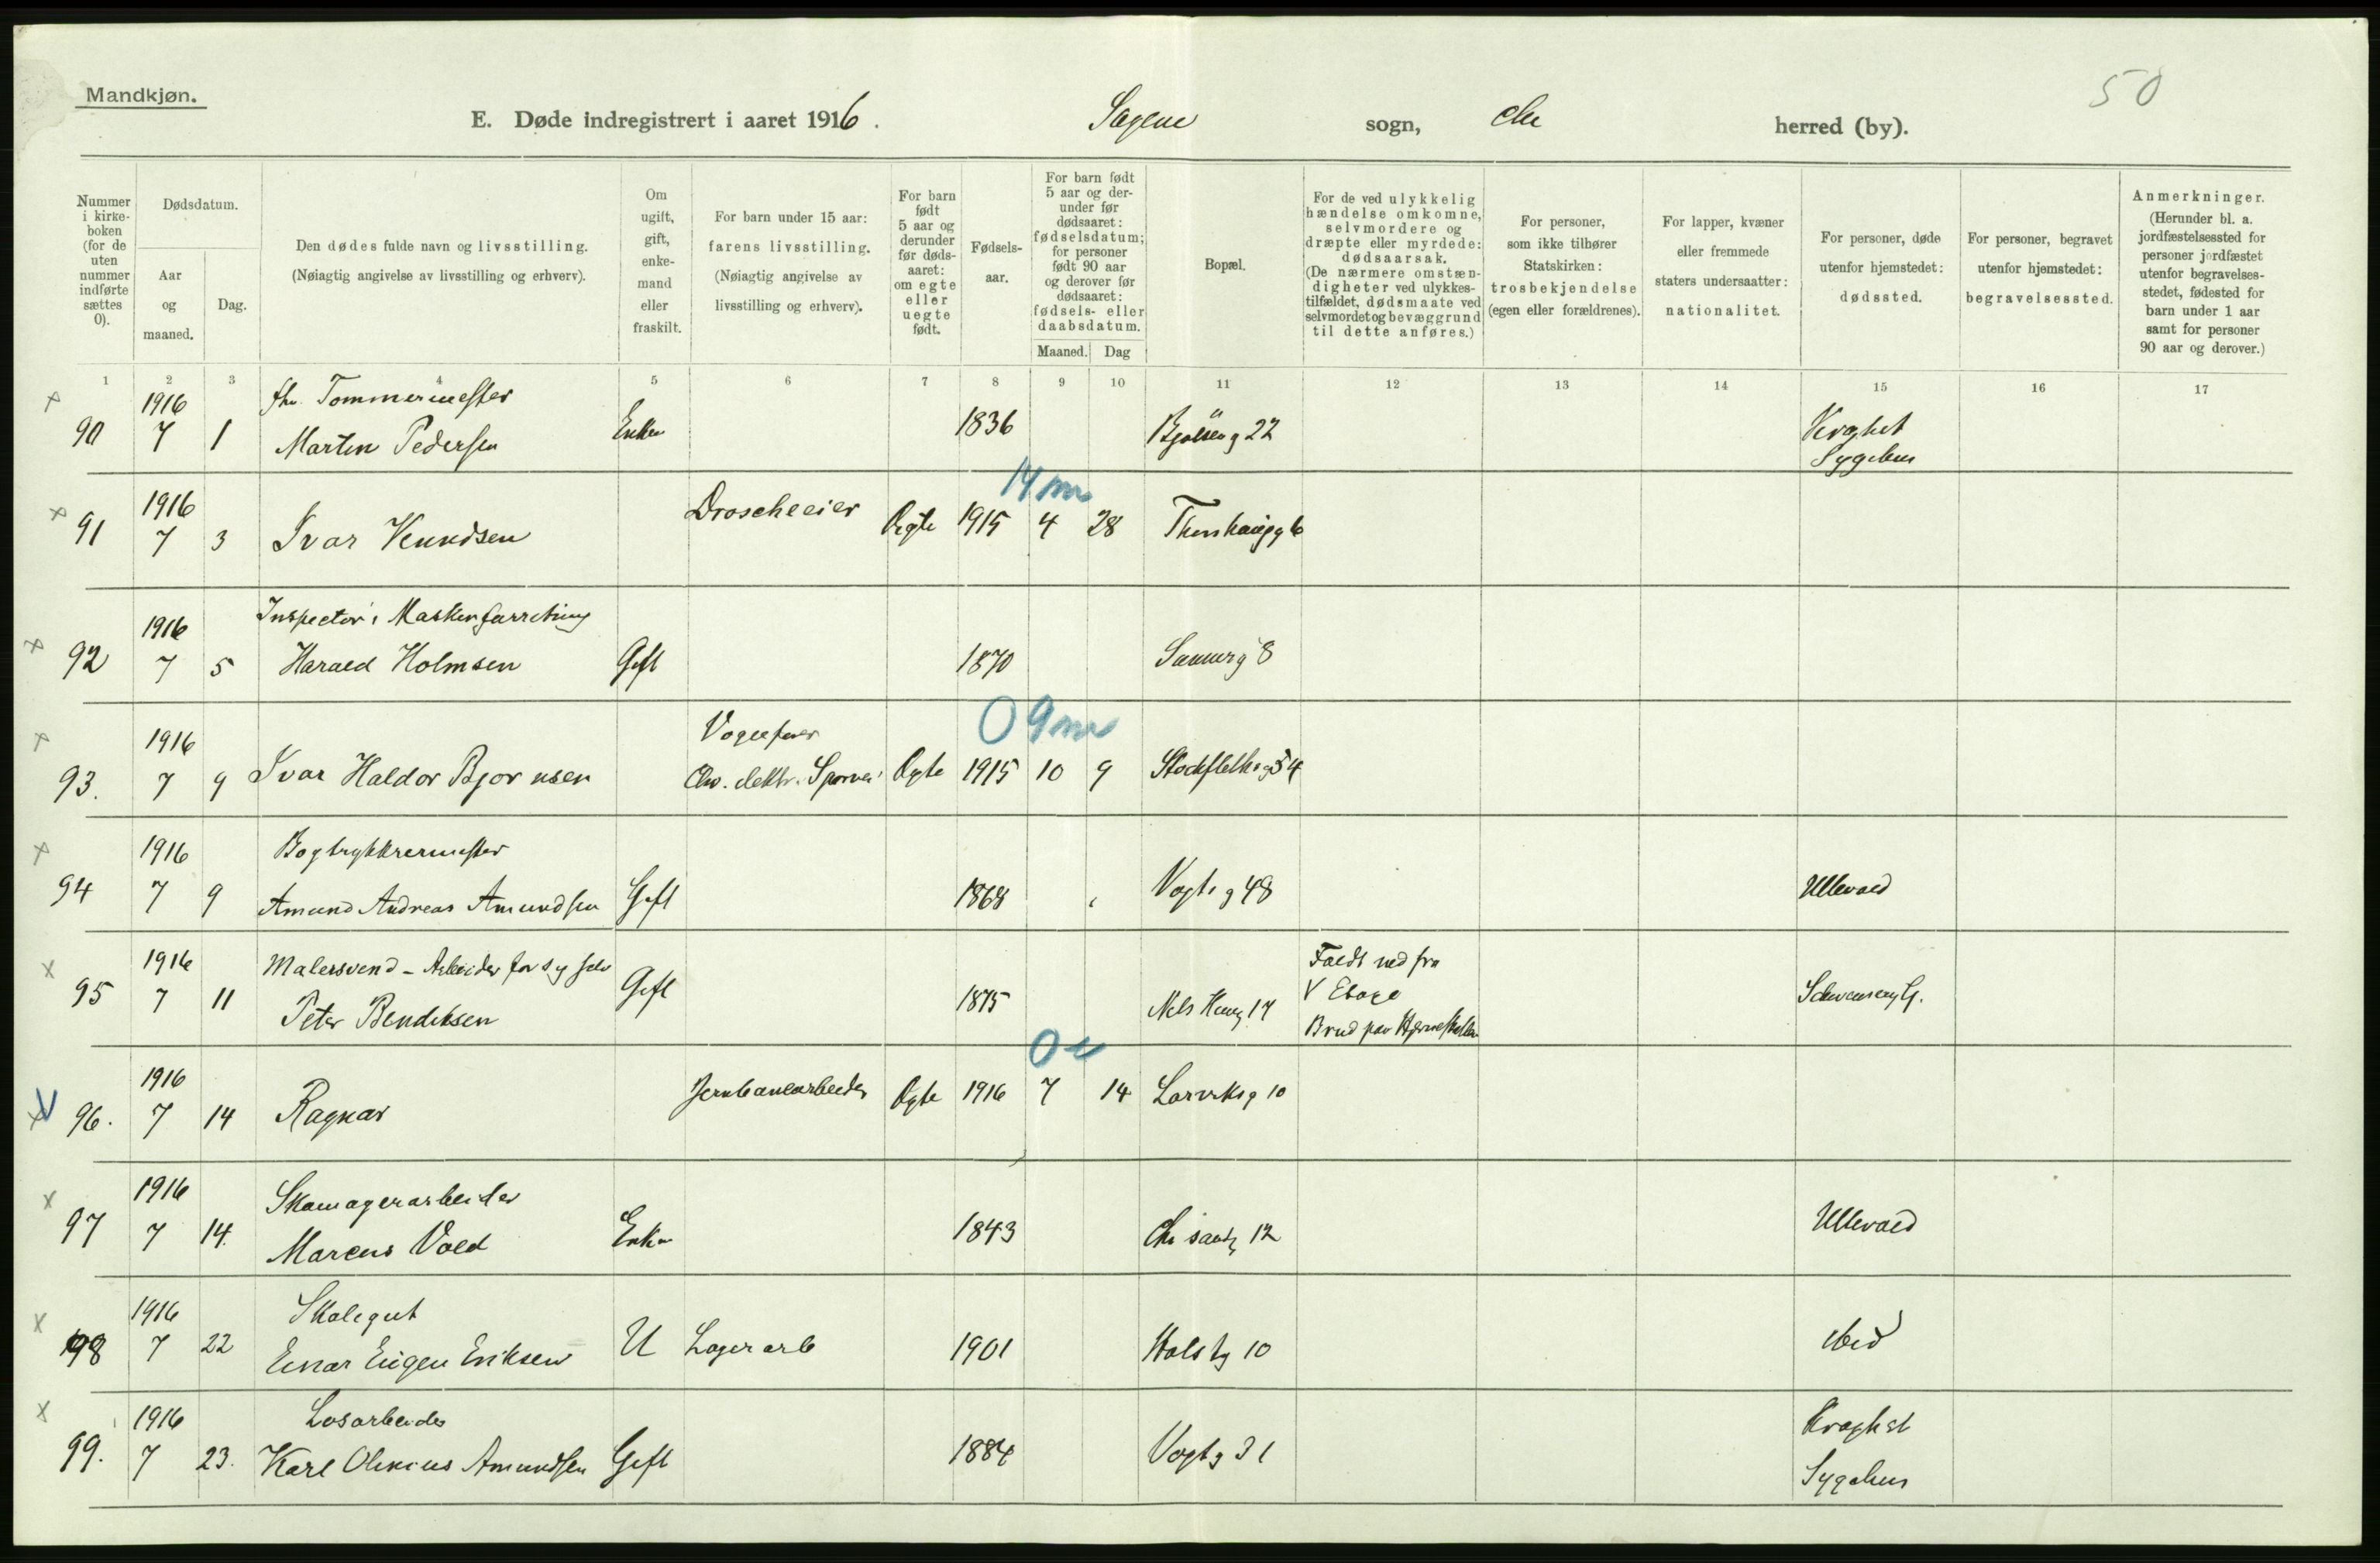 Mandkjøn.
50
E. Døde indregistrert i aaret 1916.
Sagene sogn, Chr herred (by).
Nummer i kirkeboken (for de uten nummer indførte sættes 0).
Dødsdatum.
Aar og maaned.
Dag.
Den dødes fulde navn og livsstilling.
(Nøiagtig angivelse av livsstilling og erhverv).
Om ugift, gift, enkemand eller fraskilt.
For barn under 15 aar: farens livsstilling.
(Nøiagtig angivelse av livsstilling og erhverv).
For barn født 5 aar og derunder før dødsaaret: om egte eller uegte født.
Fødselsaar.
For barn født 5 aar og derunder før dødsaaret: fødselsdatum; for personer født 90 aar og derover før dødsaaret: fødsels- eller daabsdatum.
Maaned. Dag
Bopæl.
For de ved ulykkelig hændelse omkomne, selvmordere og dræpte eller myrdede: dødsaarsak.
(De nærmere omstændigheter ved ulykkestilfældet, dødsmaate ved selvmordet og bevæggrund til dette anføres.)
For personer, som ikke tilhører Statskirken: trosbekjendelse (egen eller forældrenes).
For lapper, kvæner eller fremmede staters undersaatter: nationalitet.
For personer, døde utenfor hjemstedet: dødssted.
For personer, begravet utenfor hjemstedet: begravelsessted.
Anmerkninger.
(Herunder bl. a. jordfæstelsessted for personer jordfæstet utenfor begravelsesstedet, fødested for barn under 1 aar samt for personer 90 aar og derover.)
1 2 3 4 5 6 7 8 9 10 11 12 13 14 15 16 17
x 1916 fhv. Tommermester
90 7 1 Martin Pedersen Enkem 1836 Bjølseng 22 Kroghst Sygehus
14 m
x 1916 Droscheeier
91 7 3 Ivar Knudsen Ægte 1915 4 28 Thorshaugg 6
x 1916 Inspector i Maskinforretning
92 7 5 Harald Holmsen Gift 1870 8
0 9 m
x 1916 Vognfører
93. 7 9 Ivar Haldor Bjørnsen Chr. elektr. Sporvei Ægte 1915 10 9 Stockflethsg 54
x 1916 Bogtrykkermester
94 7 9 Amund Andreas Amundsen Gift 1868 Vogtsg 48 Ullevaal
x 1916 Malersvend - Arbeider for sig selv
95 7 11 Peter Bendiksen Gift 1875 Nels Henng 17
Faldt ned fra
V Etage
Brud paa Hjerneskallen
0
x V 1916
96. 7 14 Ragnar Jernbanearbeider Ægte 1916 7 14 Larviksg 10
x 1916 Skomagerarbeider
97 7 14. Marcus Vold Enkem 1843 Chr sandsg 12 Ullevaal
x 1916 Skolegut
98 7 22 Einar Eugen Eriksen U Lagerarb 1901 Holstg 10 ibid
x 1916 Løsarbeider
99. 7 23. Karl Olenius Amundsen Gift 1884 Vogtsg 31 Kroghst
Sygehus